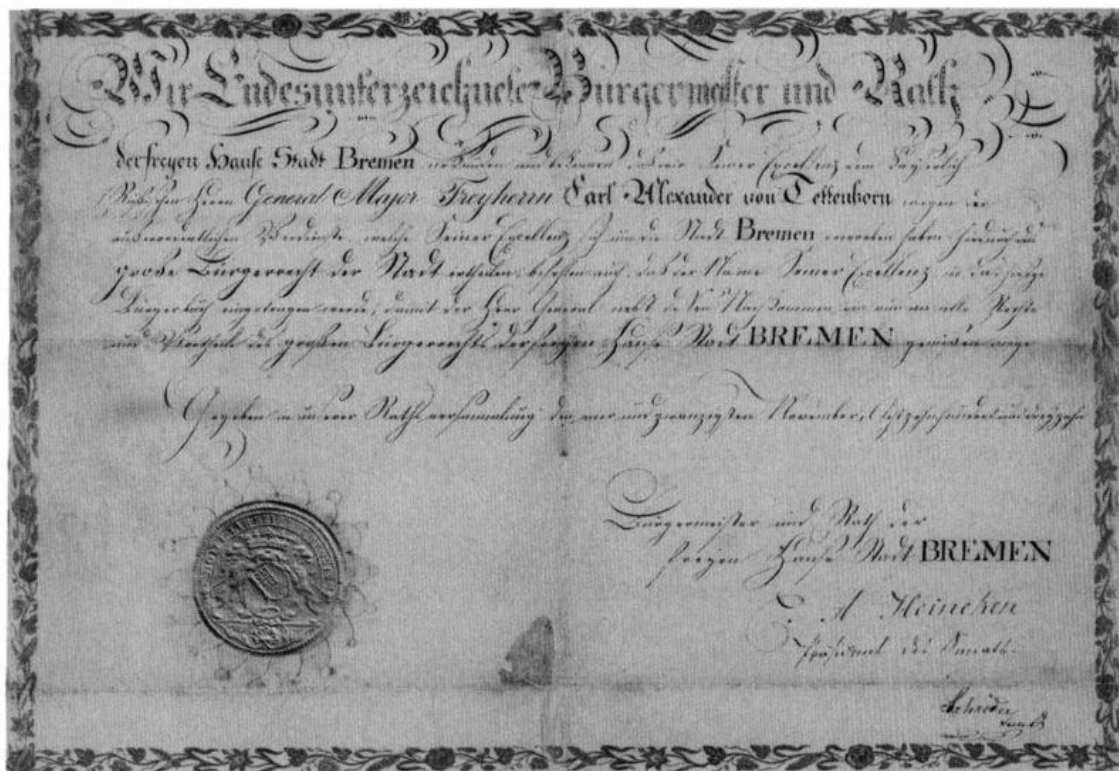 Wir Endesunterzeichnete Bürgermeister und Rath
der freyen Hanse Stadt Bremen urkunden und bekennen daß wir Seiner Excellenz dem Kayserlich
Russischen Herrn General Major Freyherrn Carl Alexander von Tettenborn wegen der
ausserordentlichen Verdienste, welche Seine Excellenz sich um die Stadt Bremen erworben haben hierdurch das
große Bürgerrecht der Stadt ertheilen, befehlen auch, daß der Name Seiner Excellenz in das hiesige
Bürgerbuch eingetragen werde, damit der Herr General nebst dessen Nachkommen, von nun an alle Rechte
und Vortheile des großen Bürgerrechts der freyen Hanse Stadt BREMEN genießen möge
Gegeben in unserer Rathsversammlung den vier und zwanzigsten November, Achtzehnhundert und dreyzehn
Bürgermeister und Rath der
freyen Hanse Stadt BREMEN
A Heineken
Präsident des Senats.
Schröder